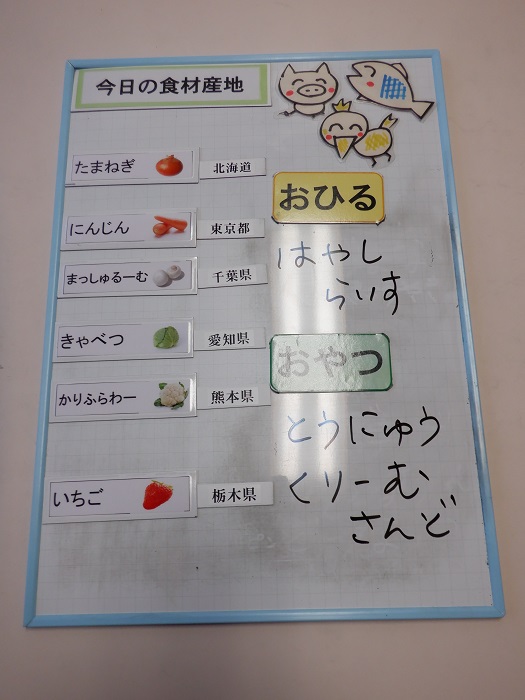 今日の食材産地
たまねぎ 北海道
にんじん 東京都
まっしゅるーむ 千葉県
きゃべつ 愛知県
かりふらわー 熊本県
いちご 栃木県
おひる
はやし
らいす
おやつ
とうにゅう
くりーむ
さんど